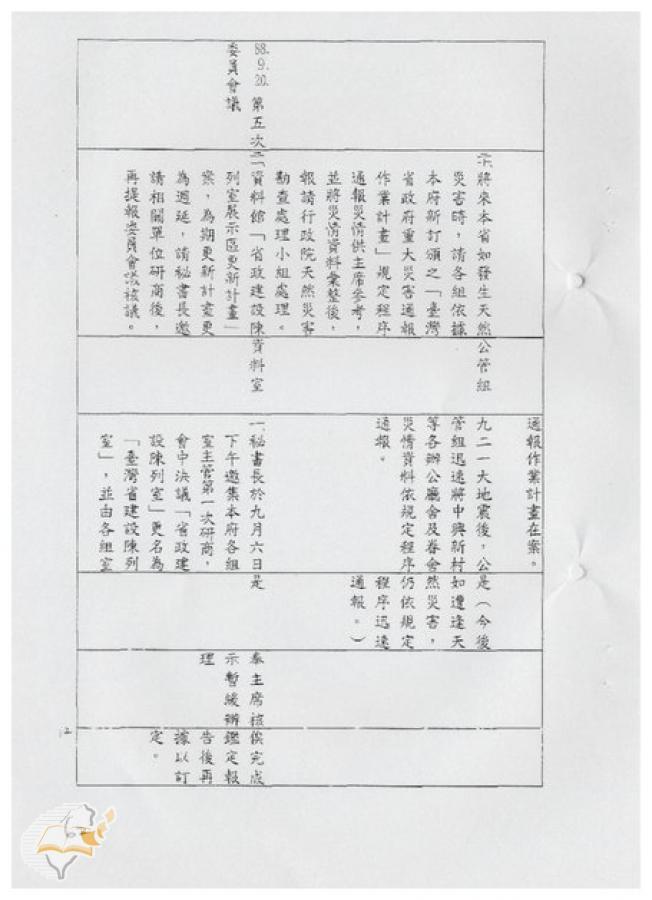 88.9.20.第五次
委員會議
將來本省如發生天然
災害時，請各組依據
本府新訂頒之「臺灣
省政府重大災害通報
作業計畫」規定程序
通報災情供主席參考，
並將災情資料彙整後，
報請行政院天然災害
勘查處理小組處理。
二、資料館「省政建設陳
列室展示區更新計畫」
案，為期更新計畫更
為週延，請秘書長邀
請相關單位研商後，
再提報委員會議核議。
公管組
資料室
通報作業計畫在案。
九二一大地震後，公
管組迅速將中興新村
等各辦公廳舍及眷舍
災情資料依規定程序
通報。
一、秘書長於九月六日
下午邀集本府各組
室主管第一次研商，
會中決議「省政建
設陳列室」更名為
「臺灣省建設陳列
室」，並由各組室
是（今後
如遭逢天
然災害，
仍依規定
程序迅速
通報。）
是
奉主席核
示暫緩辦
理
俟完成
鑑定報
告後再
據以訂
定。